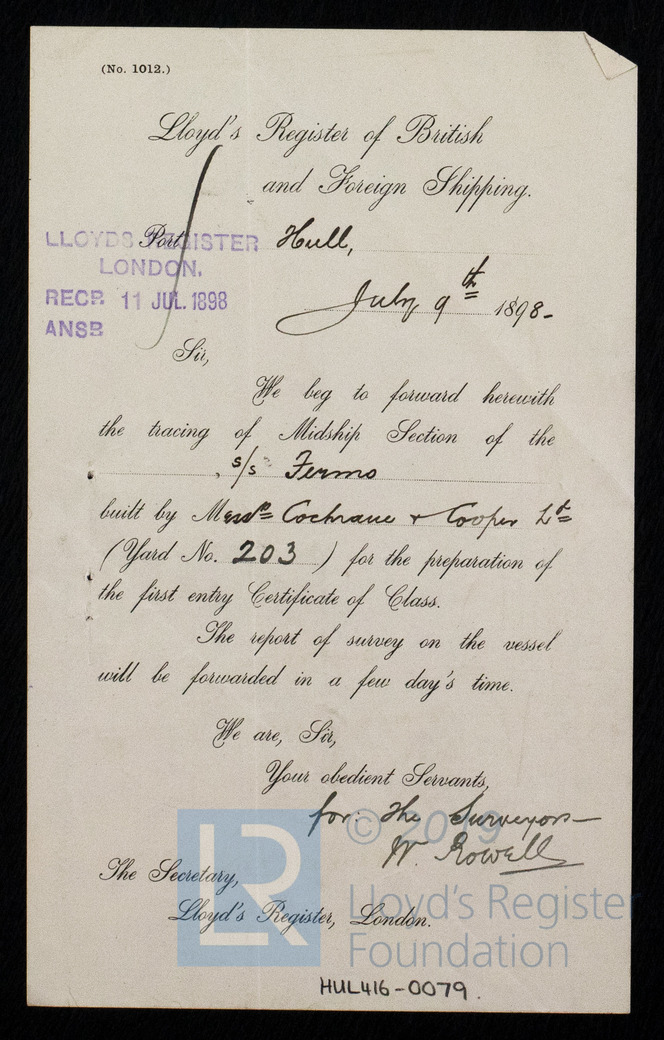 (No. 1012.)
Lloyd's Register of British
and Foreign Shipping.
Port Hull,
LLOYDS REGISTER
LONDON.
RECD. 11 JUL. 1898
ANSD
July 9th 1898-
Sir,
We beg to forward herewith
the tracing of Midship Section of the
s/s Fermo
built by Messrs Cochrane & Cooper Ld
(Yard No. 203) for the preparation of
the first entry Certificate of Class.
The report of survey on the vessel
will be forwarded in a few day's time.
We are, Sir,
Your obedient Servants,
for: The Surveyors
W. Rowell
The Secretary,
Lloyd's Register, London.
© 2019
LR
Lloyd's Register
Foundation
HUL416-0079.